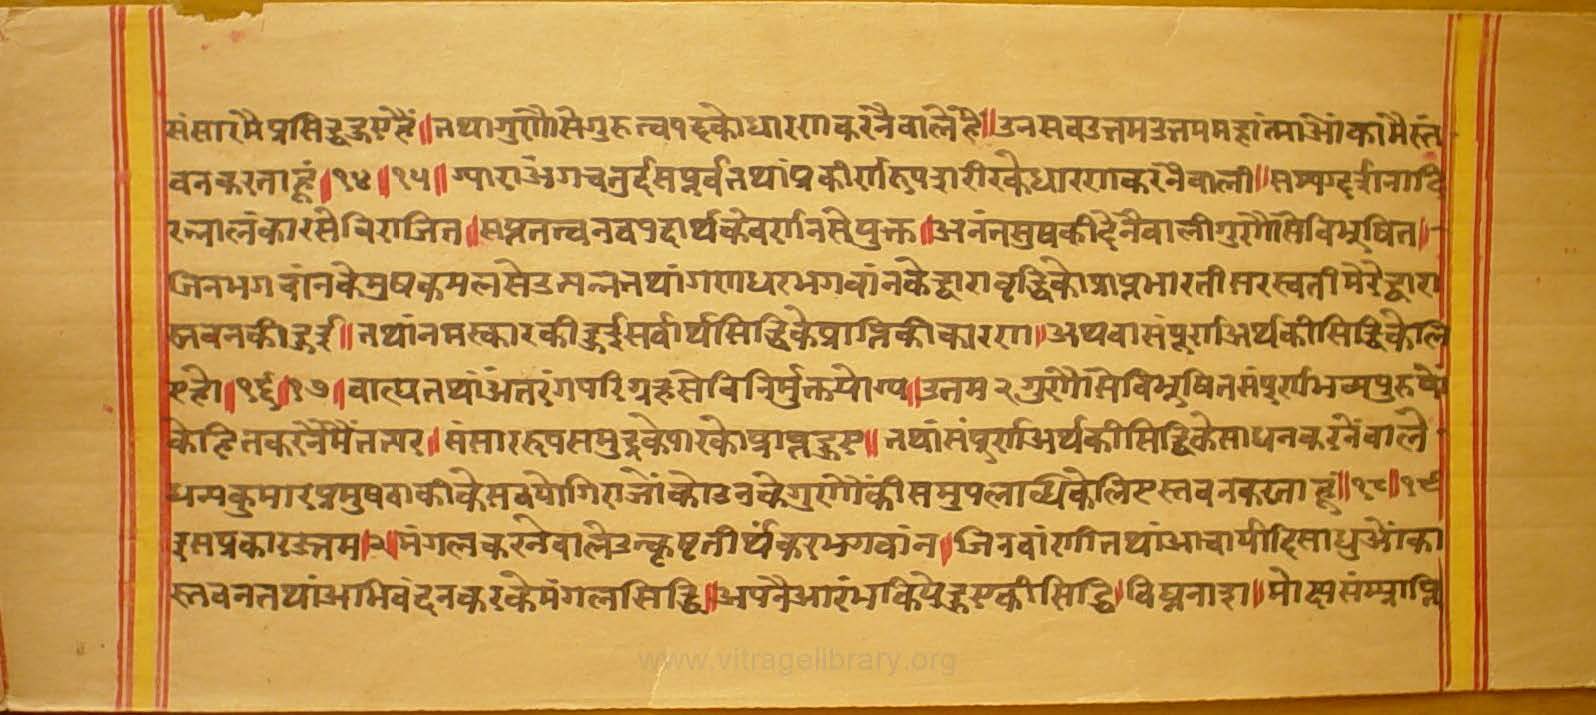 संसारमै प्रसिद्ध हुए हैं॥ तथा गुणौसे गुरुत्व पदको धारण करनैवाले हैं॥ उन सब उत्तम उत्तम महांत्माओंका मै स्त
वन करता हूं।१४।१५॥ ग्यारा अंग चतुर्दस पूर्व तथां प्रकीर्ण रूप शरीरके धारण करनैवाली॥ सम्यग्दर्शनादि
रत्नालंकारसे विराजित॥ सप्त तत्त्व नव पदार्थके वर्णनसे युक्त॥ अनंत सुषकी देनैवाली गुणौसे विभूषित॥
जिन भगवांनके मुषकमलसे उत्पन्न तथां गणधर भगवांनके द्वारा वृद्धिको प्राप्त भारती सरस्वती मेरे द्वारा
स्तवन की हुई॥ तथां नमस्कार की हुई सर्वार्थसिद्धिके प्राप्तिकी कारण॥ अथवा संपूर्ण अर्थकी सिद्धिके लि
ए हो॥१६।१७॥ वाह्य तथां अंतरंग परिग्रहसे विनिर्मुक्त योग्य॥ उत्तम २ गुणौसे विभूषित संपूर्ण भव्य पुरुषों
के हित करनैमैं तत्पर॥ संसाररूप समुद्रके पारको प्राप्त हुए॥ तथां संपूर्ण अर्थकी सिद्धिके साधन करनेंवाले
धन्यकुमार प्रमुष बाकीके सब योगिराजोंको उनके गुणौंकी समुपलब्धिके लिए स्तवन करता हूं॥१८॥१९
इस प्रकार उत्तम २॥ मंगल करनेवाले उत्कृष्ट तीर्थंकर भगवांन। जिनवांणी तथां आचार्यादि साधुओंका
स्तवन तथां अभिवंदन करके मंगलसिद्धि॥ अपनै आरंभ किये हुएकी सिद्धि। विघ्ननाश॥ मोक्ष संम्प्राप्ति
www.vitragelibrary.org